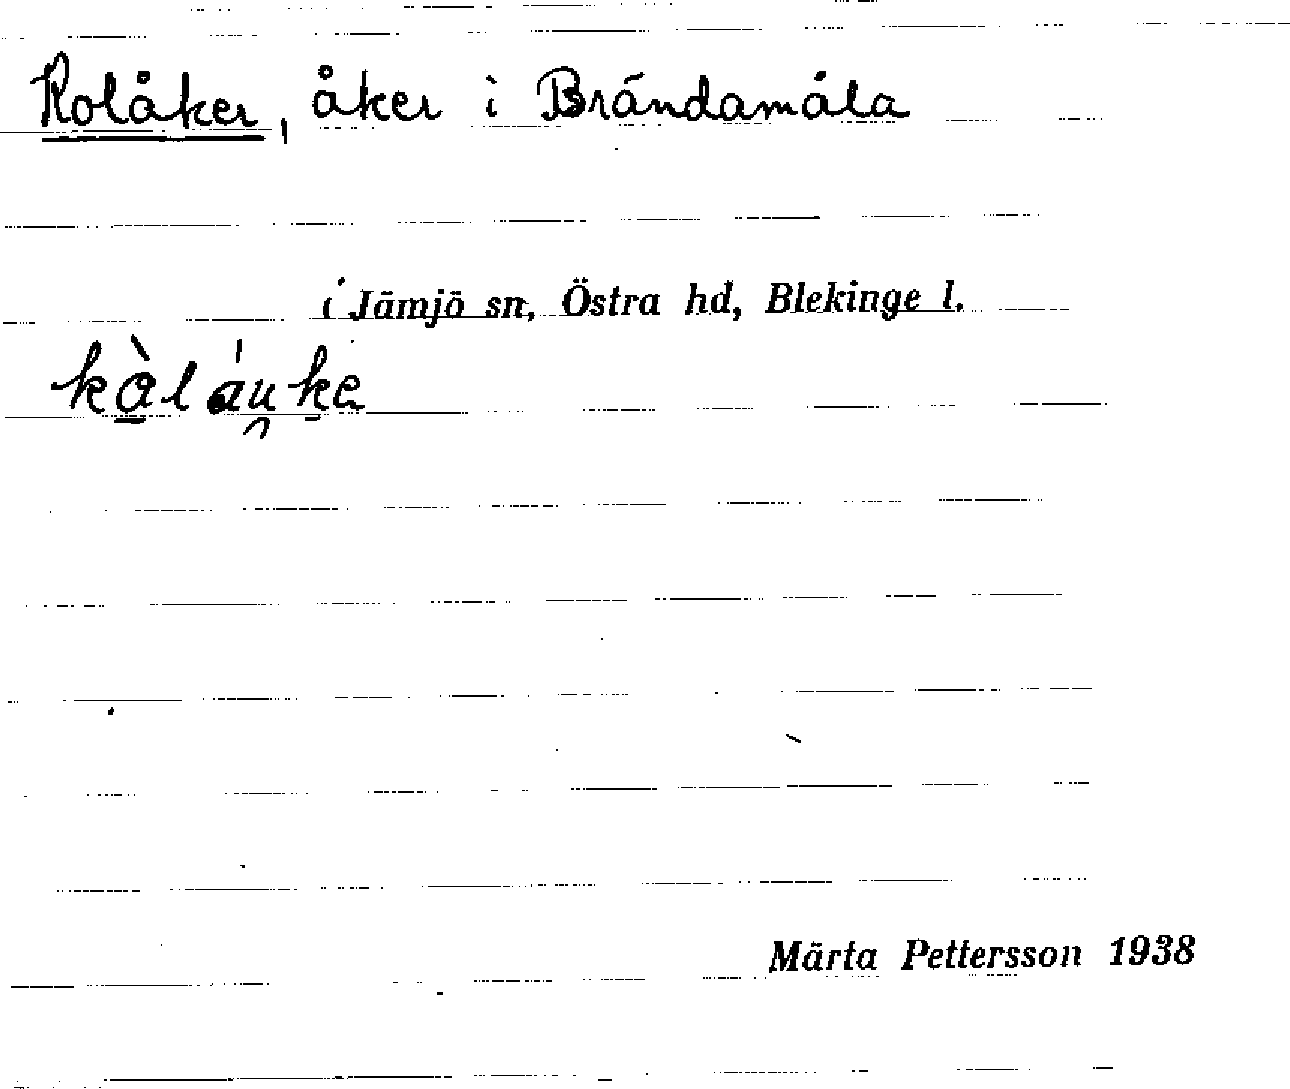 Kolåker, åker i Brändamåla
i Jämjö sn, Östra hd, Blekinge l.
kàláu̯ke
Märta Pettersson 1938